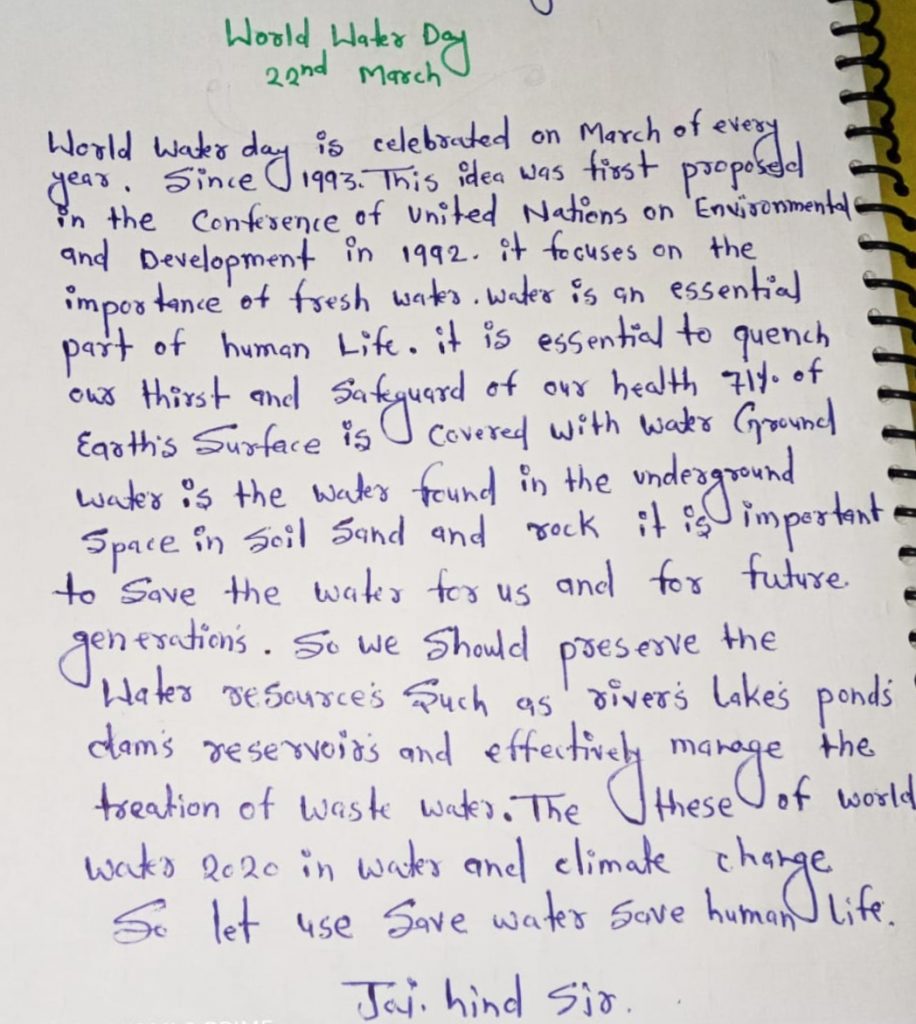 World Water Day
22nd March
World water day is celebrated on March of every
year. Since 1993. This idea was first proposed
in the Conference of United Nations on Environmental
and Development in 1992. it focuses on the
importance of fresh water. water is an essential
part of human Life. it is essential to quench
our thirst and Safeguard of our health 71% of
Earth's Surface is Covered with water Ground
water is the water found in the underground
Space in Soil Sand and rock it is important
to Save the water for us and for future
generation's. So we Should preserve the
Water resource's Such as river's Lake's pond's
dam's reservoir's and effectively manage the
treation of waste water. The these of world
water 2020 in water and climate change
So let use Save water Save human Life.
Jai. hind Sir.